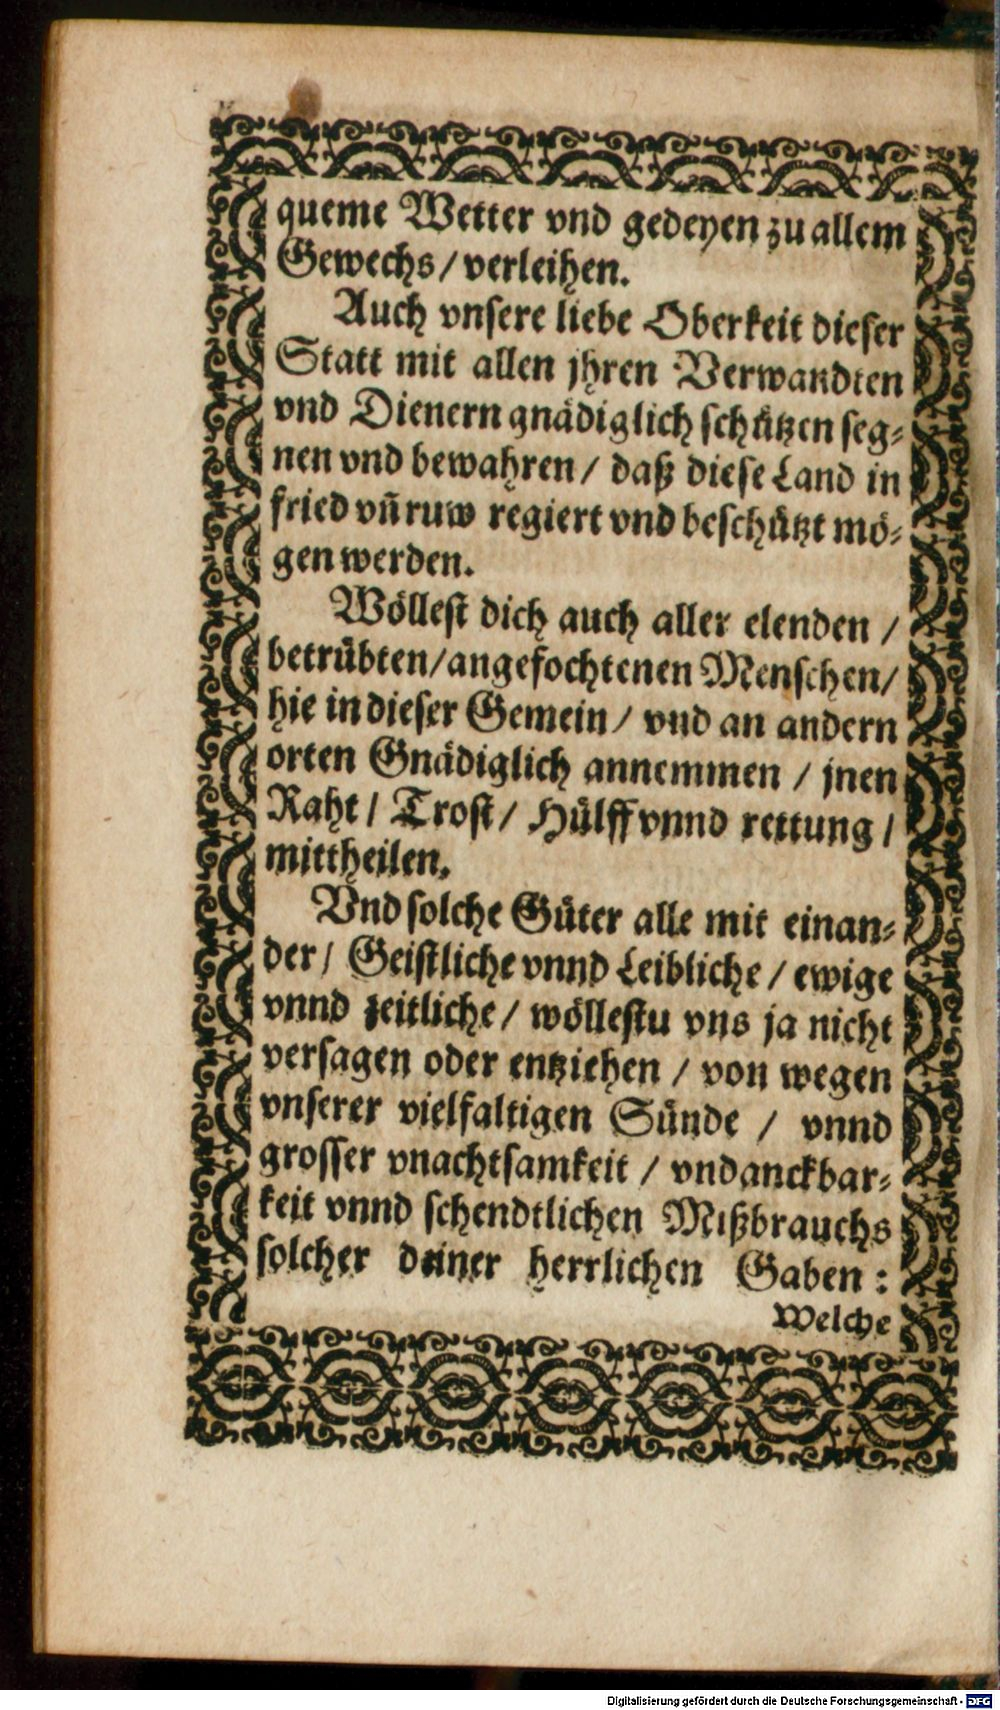 queme Wetter vnd gedeyen zu allem
Gewechs / verleihen.
Auch vnsere liebe Oberkeit dieser
Statt mit allen jhren Verwandten
vnd Dienern gnädiglich schützen seg⸗
nen vnd bewahren / daß diese Land in
fried vñ ruw regiert vnd beschützt mö⸗
gen werden.
Wöllest dich auch aller elenden /
betrübten / angefochtenen Menschen /
hie in dieser Gemein / vnd an andern
orten Gnädiglich annemmen / jnen
Raht / Trost / Hülff vnnd rettung /
mittheilen.
Vnd solche Güter alle mit einan⸗
der / Geistliche vnnd Leibliche / ewige
vnnd zeitliche / wöllestu vns ja nicht
versagen oder entziehen / von wegen
vnserer vielfaltigen Sünde / vnnd
grosser vnachtsamkeit / vndanckbar⸗
keit vnnd schendtlichen Mißbrauchs
solcher deiner herrlichen Gaben :
Welche
Digitalisierung gefördert durch die Deutsche Forschungsgemeinschaft - DFG